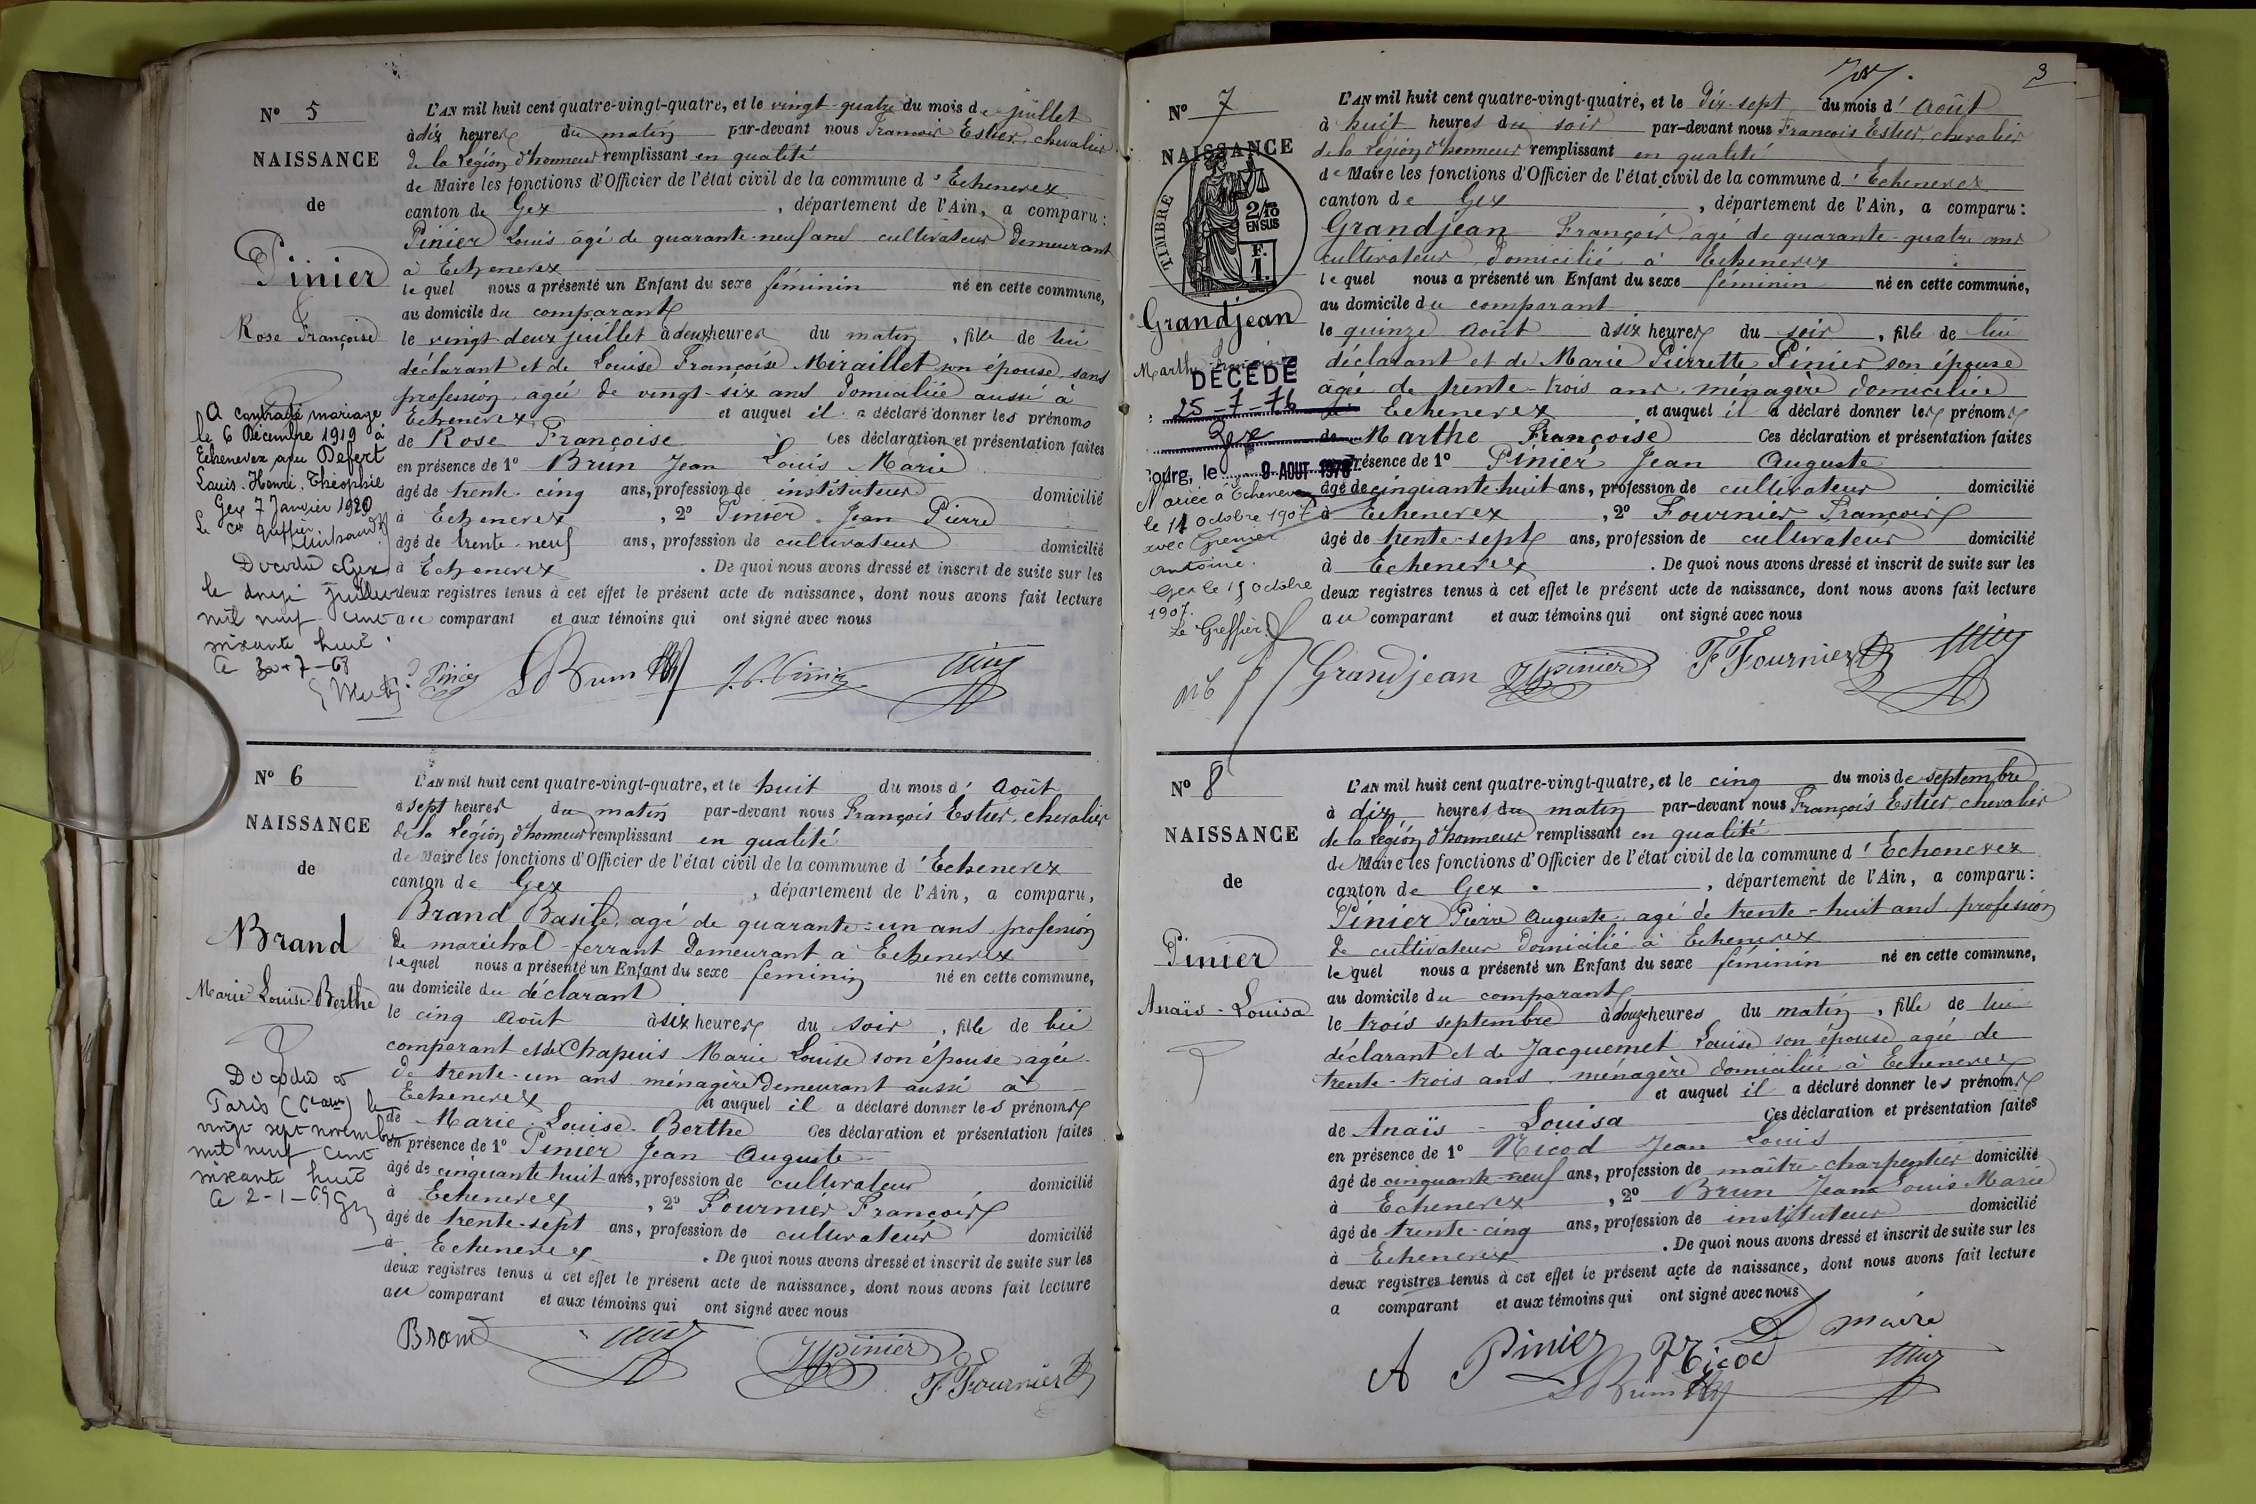 Nº 5
NAISSANCE
de
Pinier
Rose Françoise
A contracté mariage
le 6 Décembre 1919 à
Echenevex avec Defert
Louis-Henri-Théophile
Gex 7 Janvier 1920
Le Cis Greffier
Décédée à Gex
le onze juillet
mil neuf cent
soixante huit
Le 30-7-68
L'AN mil huit cent quatre-vingt-quatre, et le vingt-quatre du mois de juillet
à dix heures du matin par-devant nous François Estier, chevalier
de la Légion d'honneur remplissant en qualité
de Maire les fonctions d'Officier de l'état civil de la commune d'Echenevex
canton de Gex, département de l'Ain, a comparu:
Pinier Louis âgé de quarante-neuf ans cultivateur demeurant
à Echenevex
lequel nous a présenté un Enfant du sexe féminin né en cette commune,
au domicile du comparant
le vingt-deux juillet à deux heures du matin, fille de lui
déclarant et de Louise Françoise Miraillet son épouse sans
profession, agée de vingt-six ans domiciliée aussi à
Echenevex et auquel il a déclaré donner les prénoms
de Rose Françoise Ces déclaration et présentation faites
en présence de 1º Brun Jean Louis Marie
âgé de trente-cinq ans, profession de instituteur domicilié
à Echenevex, 2º Pinier Jean Pierre
âgé de trente-neuf ans, profession de cultivateur domicilié
à Echenevex. De quoi nous avons dressé et inscrit de suite sur les
deux registres tenus à cet effet le présent acte de naissance, dont nous avons fait lecture
au comparant et aux témoins qui ont signé avec nous
Pinier L Brun J. P. Pinier
Nº 6
NAISSANCE
de
Brand
Marie Louise Berthe
Décédée à
Paris (6e arr) le
vingt sept novembre
mil neuf cent
soixante huit
Le 2-1-69
L'AN mil huit cent quatre-vingt-quatre, et le huit du mois d'Août
à sept heures du matin par-devant nous François Estier, chevalier
de la Légion d'honneur remplissant en qualité
de Maire les fonctions d'Officier de l'état civil de la commune d'Echenevex
canton de Gex, département de l'Ain, a comparu,
Brand Basile, agé de quarante-un ans profession
de maréchal-ferrant demeurant à Echenevex
lequel nous a présenté un Enfant du sexe féminin né en cette commune,
au domicile du déclarant
le cinq Août à six heures du soir, fille de lui
comparant et de Chapuis Marie Louise son épouse agée
de trente-un ans ménagère demeurant aussi à
Echenevex et auquel il a déclaré donner les prénoms
de Marie-Louise-Berthe Ces déclaration et présentation faites
en présence de 1º Pinier Jean Auguste
âgé de cinquante huit ans, profession de cultivateur domicilié
à Echenevex, 2º Fournier François
âgé de trente-sept ans, profession de cultivateur domicilié
à Echenevex. De quoi nous avons dressé et inscrit de suite sur les
deux registres tenus à cet effet le présent acte de naissance, dont nous avons fait lecture
au comparant et aux témoins qui ont signé avec nous
Brand JA pinier F Fournier
3
Nº 7
NAISSANCE
TIMBRE
2/10
EN SUS
F.
1.
Grandjean
Marthe Françoise
DÉCÉDÉ
25-7-76
Gex
Bourg, le 9 AOUT 1976
Mariée à Echenevex
le 11 octobre 1907
avec Grenier
Antoine.
Gex le 15 octobre
1907.
Le Greffier
L'AN mil huit cent quatre-vingt-quatre, et le dix-sept du mois d'Août
à huit heures du soir par-devant nous François Estier, chevalier
de la Légion d'honneur remplissant en qualité
de Maire les fonctions d'Officier de l'état civil de la commune d'Echenevex
canton de Gex, département de l'Ain, a comparu:
Grandjean François, agé de quarante-quatre ans
cultivateur, domicilié à Echenevex
lequel nous a présenté un Enfant du sexe féminin né en cette commune,
au domicile du comparant
le quinze Août à six heures du soir, fille de lui
déclarant et de Marie Pierrette Pinier son épouse
âgée de trente-trois ans, ménagère domiciliée
à Echenevex et auquel il a déclaré donner les prénoms
de Marthe Françoise Ces déclaration et présentation faites
en présence de 1º Pinier Jean Auguste
âgé de cinquante huit ans, profession de cultivateur domicilié
à Echenevex, 2º Fournier François
âgé de trente-sept ans, profession de cultivateur domicilié
à Echenevex. De quoi nous avons dressé et inscrit de suite sur les
deux registres tenus à cet effet le présent acte de naissance, dont nous avons fait lecture
au comparant et aux témoins qui ont signé avec nous
Grandjean JA pinier F Fournier
Nº 8
NAISSANCE
de
Pinier
Anaïs-Louisa
L'AN mil huit cent quatre-vingt-quatre, et le cinq du mois de septembre
à dix heures du matin par-devant nous François Estier, chevalier
de la Légion d'honneur remplissant en qualité
de Maire les fonctions d'Officier de l'état civil de la commune d'Echenevex
canton de Gex, département de l'Ain, a comparu:
Pinier Pierre Auguste, agé de trente-huit ans profession
de cultivateur domicilié à Echenevex
lequel nous a présenté un Enfant du sexe féminin né en cette commune,
au domicile du comparant
le trois septembre à douze heures du matin, fille de lui
déclarant et de Jacquemet Louise son épouse agée de
trente-trois ans, ménagère domiciliée à Echenevex
et auquel il a déclaré donner les prénoms
de Anaïs-Louisa Ces déclaration et présentation faites
en présence de 1º Nicod Jean Louis
âgé de cinquante-neuf ans, profession de maître charpentier domicilié
à Echenevex, 2º Brun Jean Louis Marie
âgé de trente-cinq ans, profession de instituteur domicilié
à Echenevex. De quoi nous avons dressé et inscrit de suite sur les
deux registres tenus à cet effet le présent acte de naissance, dont nous avons fait lecture
a comparant et aux témoins qui ont signé avec nous
A Pinier Nicod Le maire
L Brun